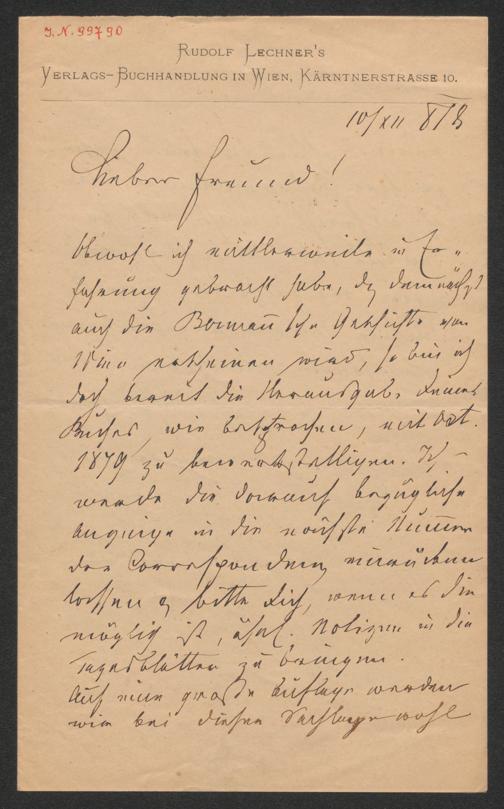 J. N. 99790
RUDOLF LECHNER'S
VERLAGS-BUCHHANDLUNG IN WIEN, KÄRNTNERSTRASSE 10.
10/XII 878
Lieber Freund!
Obwohl ich mittlerweile in Er-
fahrung gebracht habe, daß demnächst
auch die Bermann'sche Geschichte von
Wien erscheinen wird, so bin ich
doch bereit die Herausgabe Deines
Buches, wie besprochen, mit Oct.
1879 zu bewerkstelligen. Ich
werde die darauf bezügliche
Anzeige in die nächste Nummer
der Correspondenz einrücken
lassen & bitte Dich, wenn es Dir
möglich ist, ähnl. Notizen in die
Tagesblätter zu bringen.
Auf eine große Auflage werden
wir bei dieser Sachlage wohl